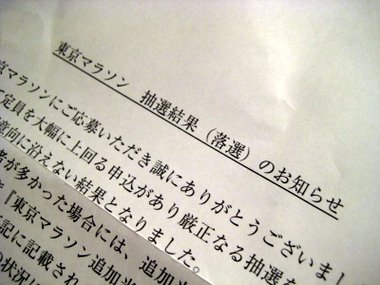 東京マラソン 抽選結果（落選）のお知らせ
京マラソンにご応募いただき誠にありがとうございまし
て定員を大幅に上回る申込があり厳正なる抽選を
意向に沿えない結果となりました。
者が多かった場合には、追加当
『東京マラソン追加当
記に記載され
の状況